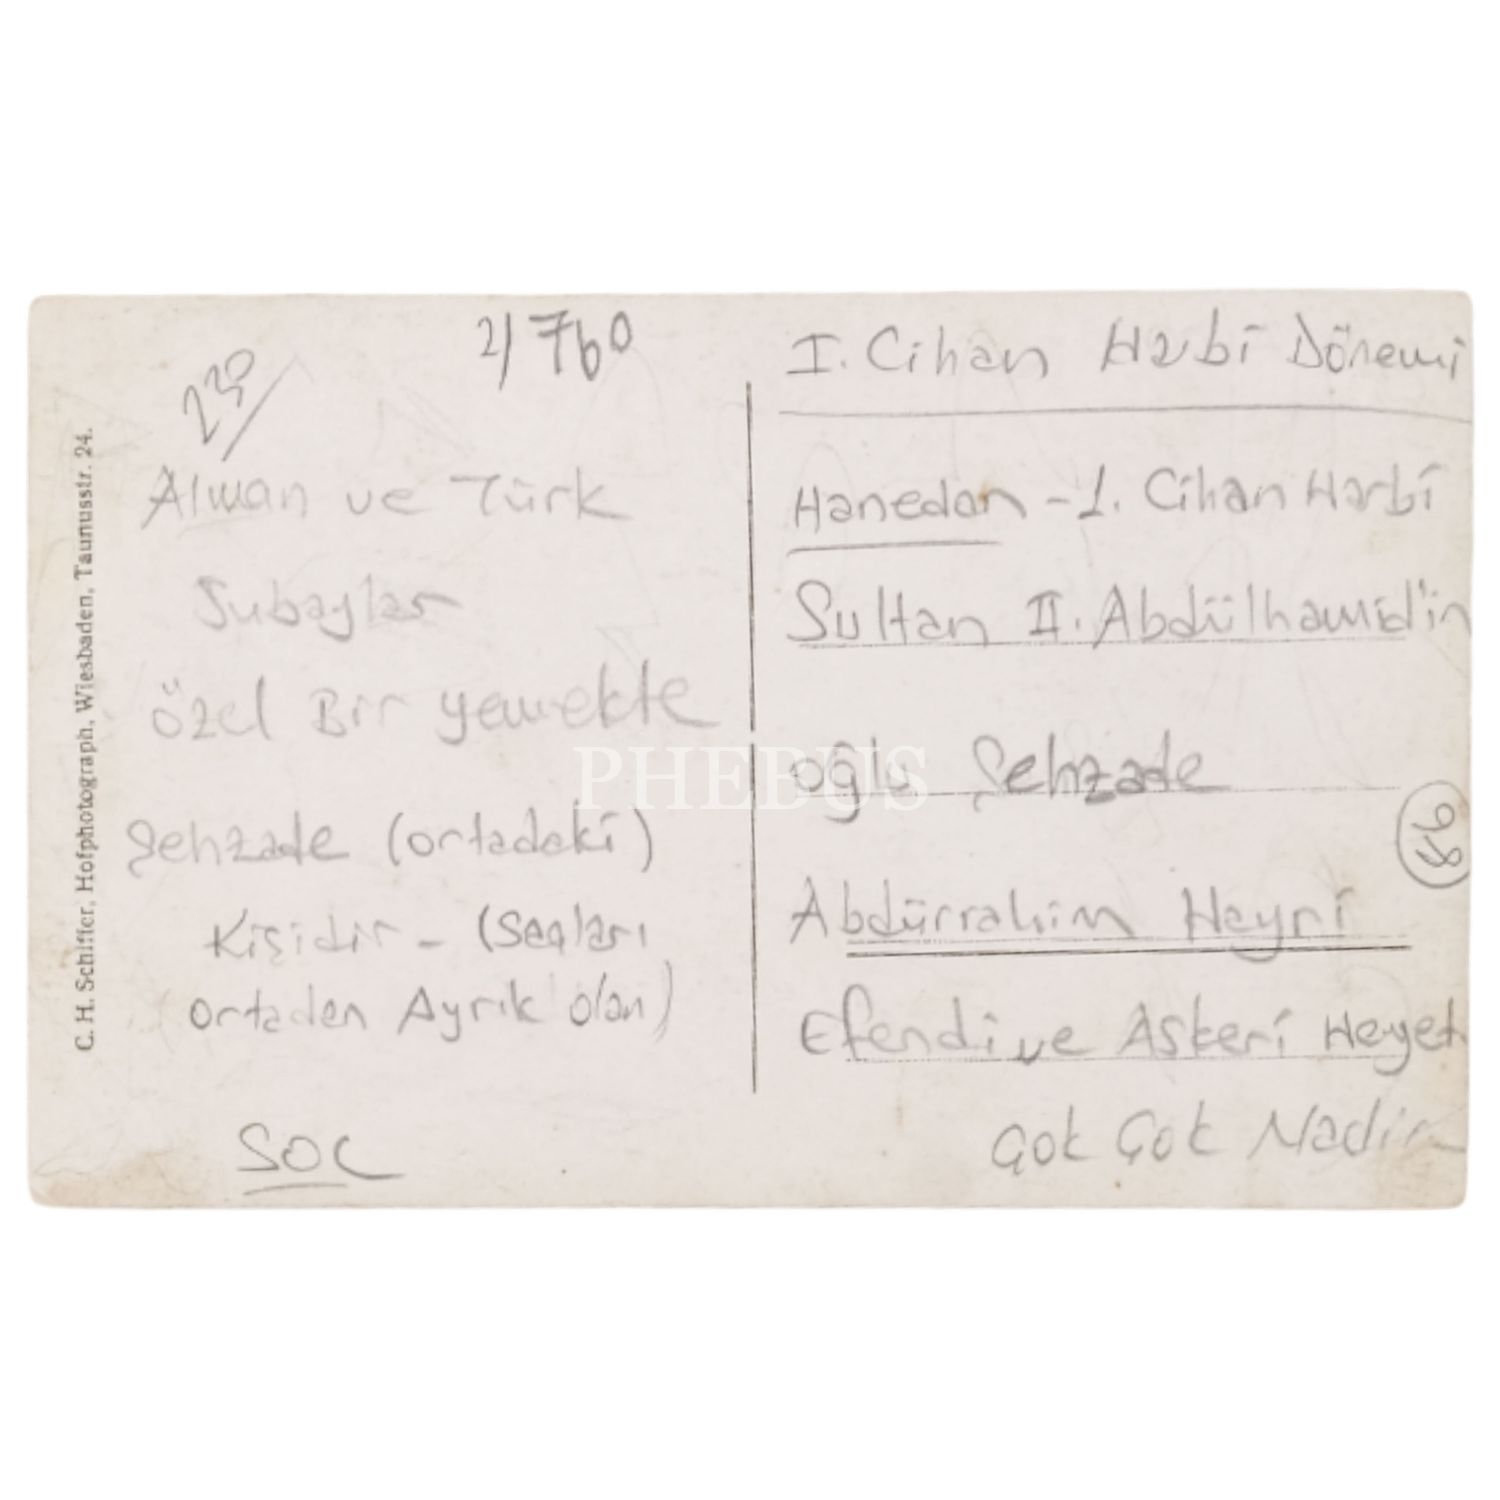 C. H. Schiffer, Hofphotograph, Wiesbaden, Taunusstr. 24.
230/
2/ 760
Alman ve Türk
Subaylar
Özel Bir yemekte
Şehzade (ortadaki)
Kişidir - (Saçları
ortadan Ayrık olan)
SOC
I. Cihan Harbi Dönemi
Hanedan - 1. Cihan Harbi
Sultan II. Abdülhamid'in
oğlu Şehzade
Abdürrahim Hayri
Efendi ve Askeri Heyet
Çok Çok Nadir
PHEBUS